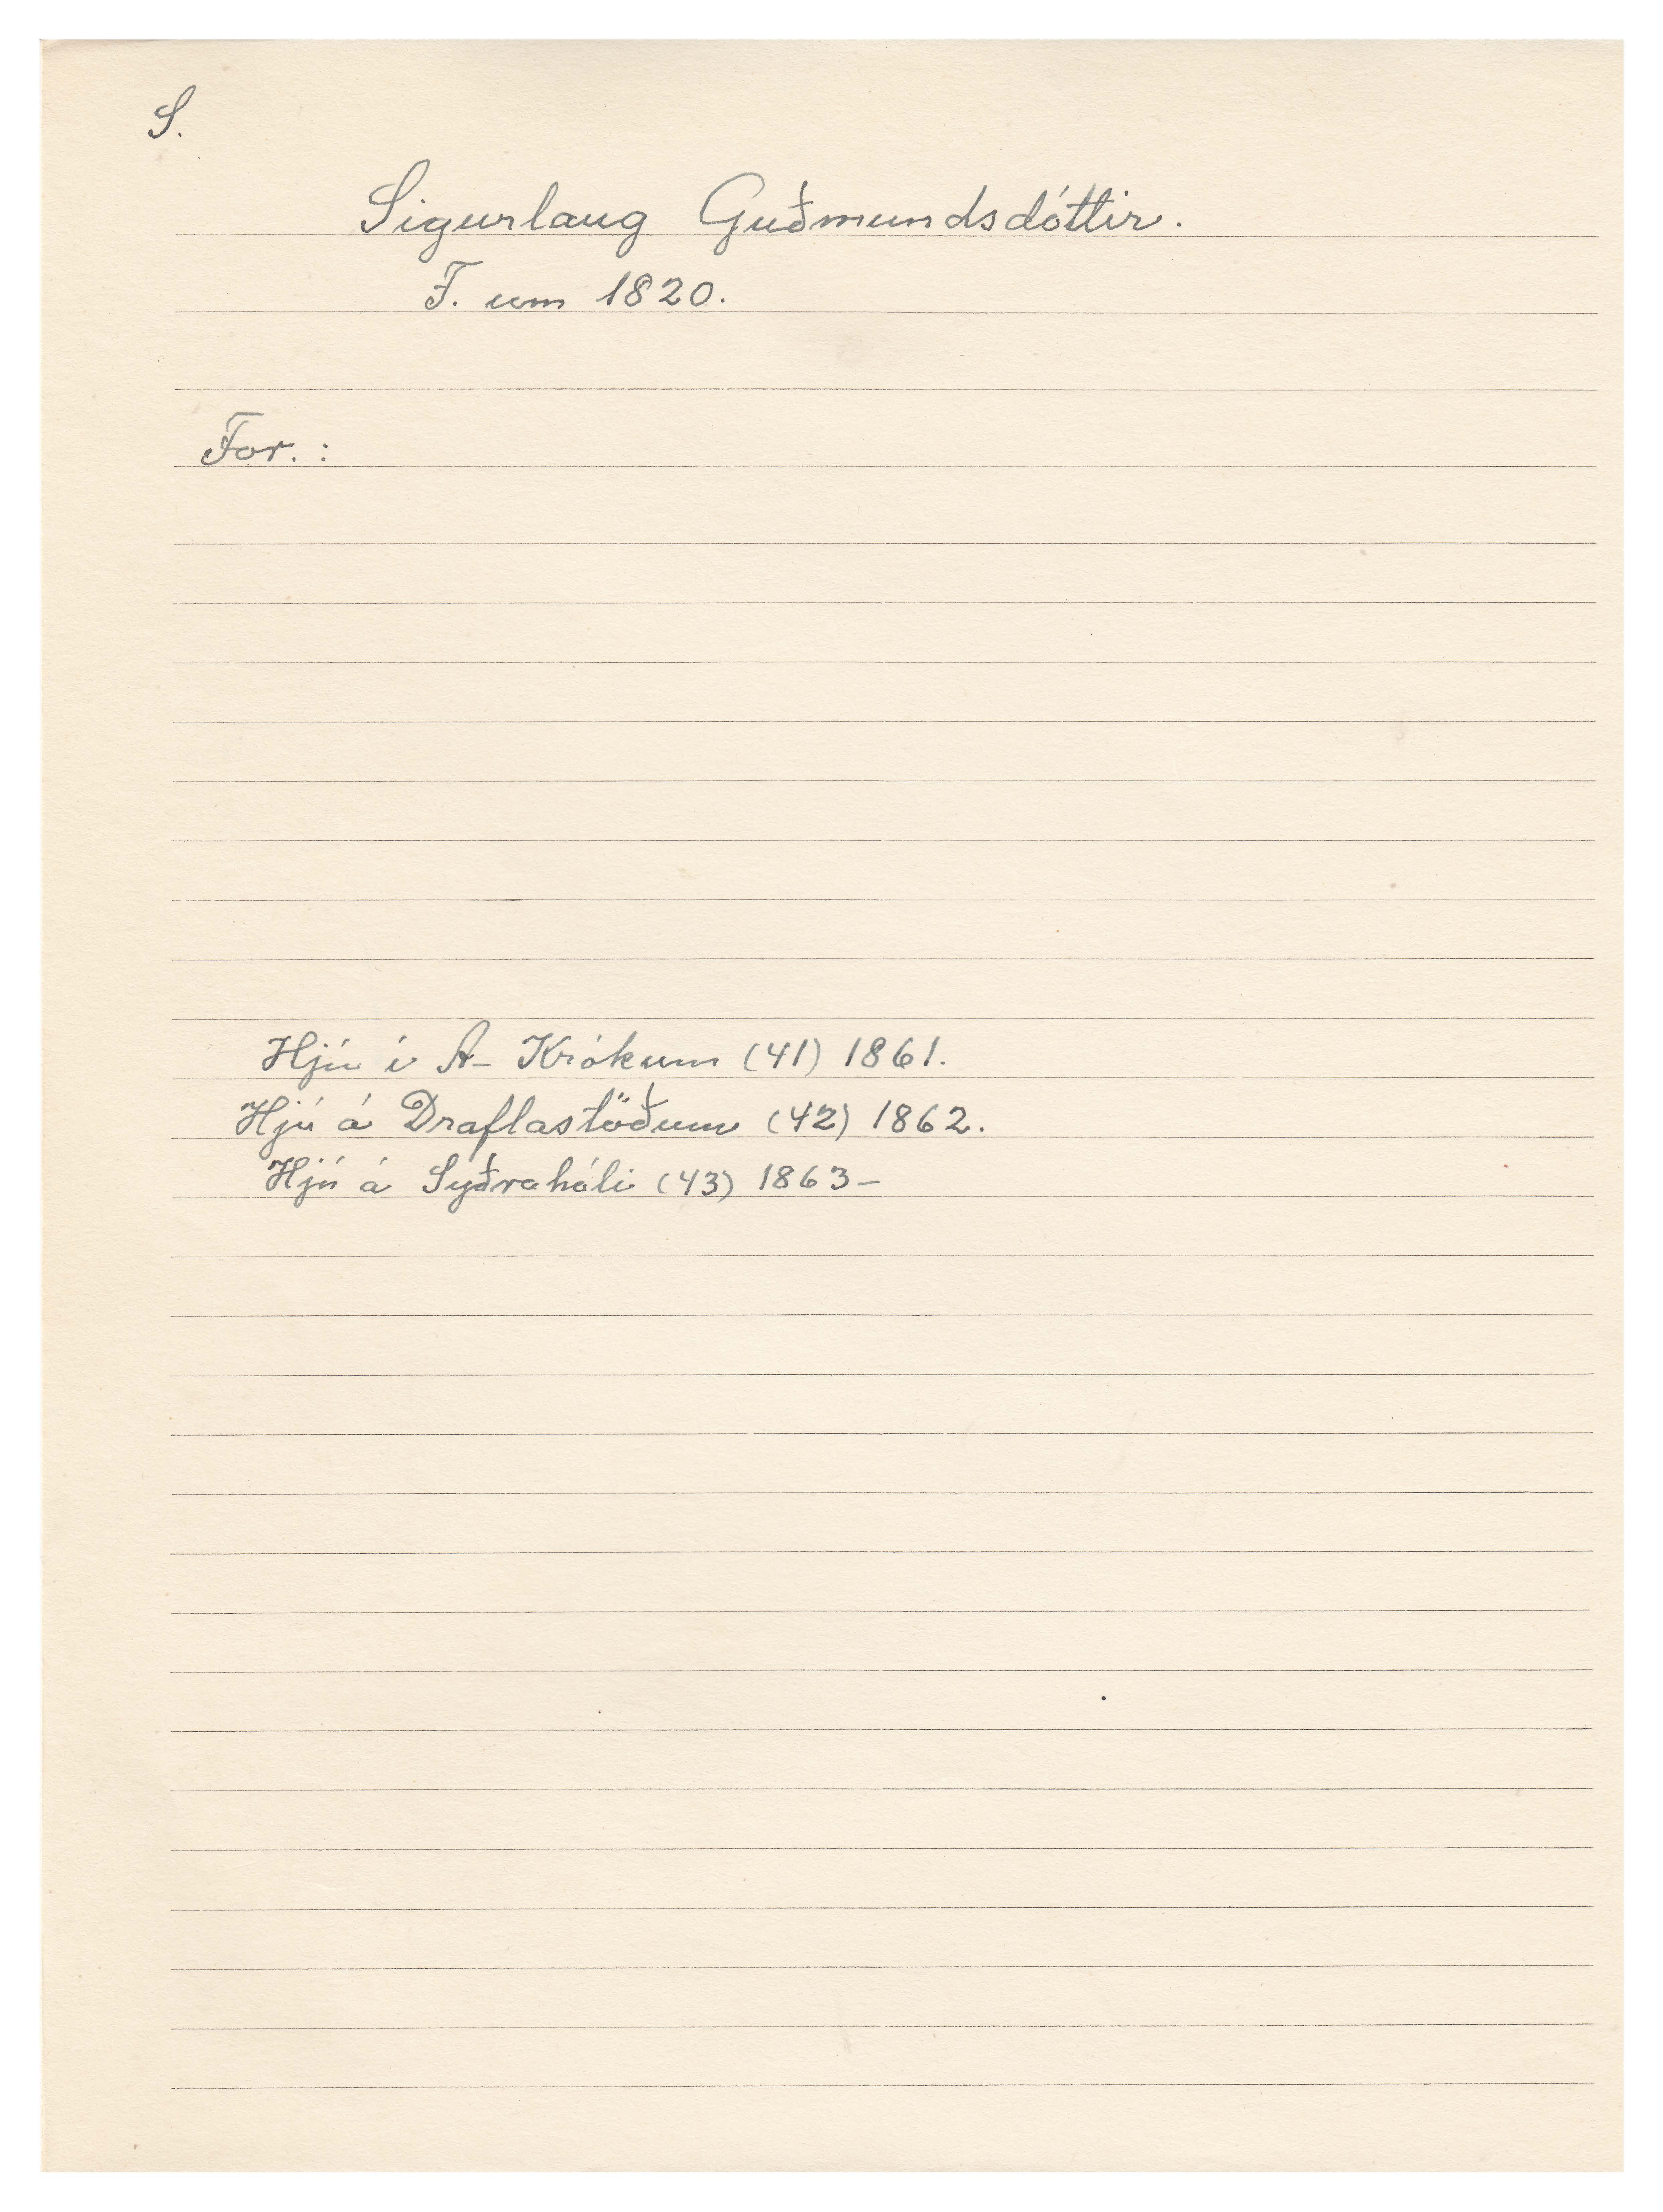 S.
Sigurlaug Guðmundsdóttir.
F. um 1820.
For. :
Hjú í A- Krókum (41) 1861.
Hjú á Draflastöðum (42) 1862.
Hjú á Syðrahóli (43) 1863-